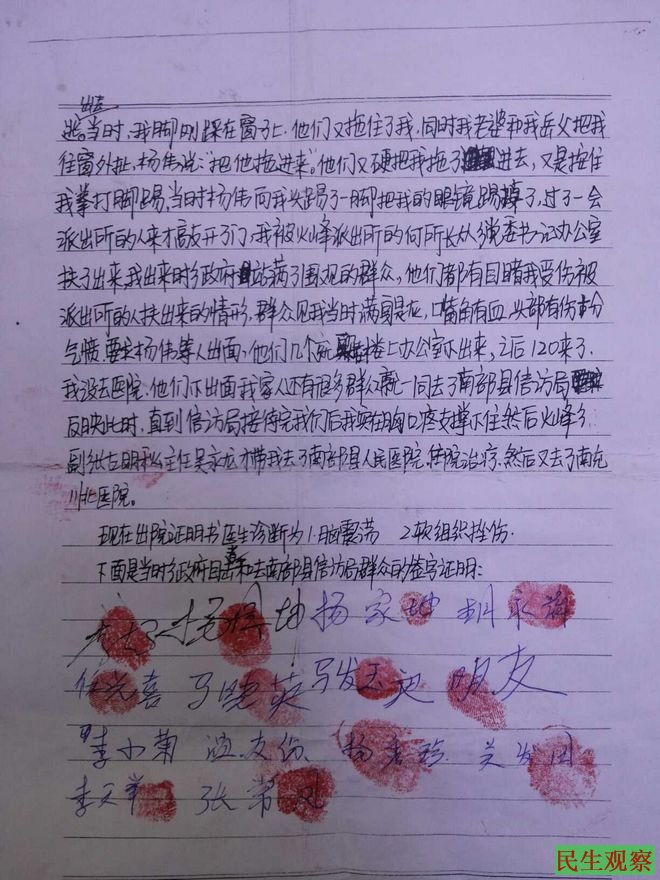 出去
逃。当时,我脚刚踩在窗子上,他们又拖住了我,同时我老婆和我岳父把我
往窗外扯,杨伟说:“把他拖进来”。他们又硬把我拖了进去,又是按住
我拳打脚踢,当时杨伟向我头踢了一脚把我的眼镜踢掉了,过了一会
派出所的人来才高友开了门,我被火峰派出所的何所长从党委书记办公室
扶了出来,我出来时乡政府站满了围观的群众,他们都有目睹我受伤被
派出所的人扶出来的情形,群众见我当时满身是灰,嘴角有血,头部有伤十分
气愤,要求杨伟等人出面,他们几个死在楼上办公室不出来,之后120来了,
我没去医院,他们不出面我家人还有很多群众就一同去了南部县信访局
反映此时,直到信访局接待完我们后我实在胸口疼支撑不住然后火峰乡
副 主任吴永龙才带我去了南部县人民医院,住院治疗,然后又去了南充
川北医院。
现在出院证明书医生诊断为1.脑震荡 2.软组织挫伤.
下面是当时乡政府目击者和去南部县信访局群众的签字证明:
杨家坤 胡
马晓英 马发玉 明友
李小菊 友伤
李天
民生观察